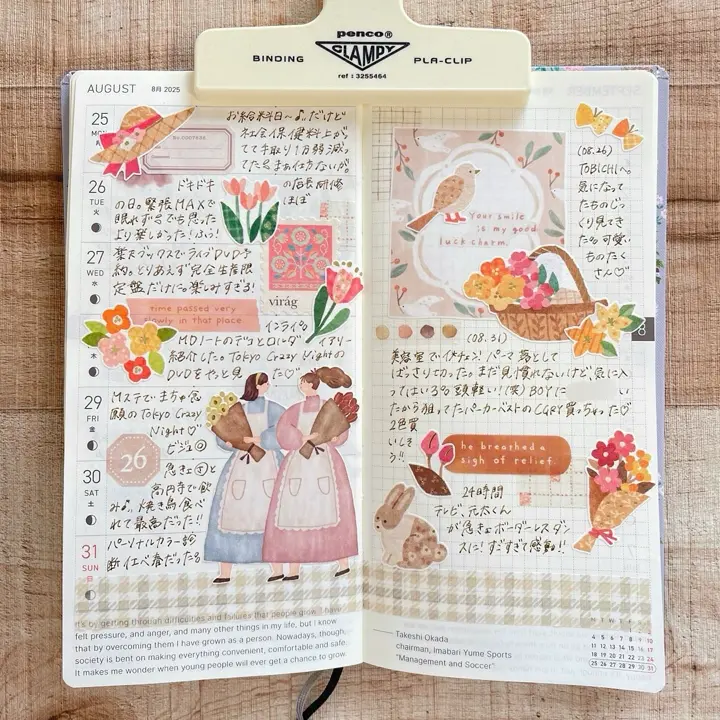 penco®
CLAMPY
BINDING PLA-CLIP
ref : 3255464
AUGUST 8月 2025
25
MON
No.0007634
お給料日〜♪。だけど
社会保険料上がっ
てて手取り1万弱減っ
てた
26
TUE
火
ドキドキ の店長研修
の日。緊張MAXで ほぼ
眠れず
より楽しかった!ふう!
27
WED
水
予
約。とりあえず完全生産限
定盤だけに。楽しみすぎる!
virág
time passed very
slowly in that place
木
インライ
MDノートのデコとロルダ イアリー
紹介した。Tokyo Crazy Nightの
DVDをやっと見 た♡
29
FRI
金
Mステで
願のTokyo Crazy
Night♡
ビジュ
30
SAT
土
26
高円寺で飲
み♪。焼き鳥食べ
れて最高だった!!
31
SUN
日
パーソナルカラー診
断
It's by getting through difficulties and failures that people grow. I have
felt pressure, and anger, and many other things in my life, but I know
that by overcoming them I have grown as a person. Nowadays, though,
society is bent on making everything convenient, comfortable and safe.
It makes me wonder when young people will ever get a chance to grow.
(08.26)
TOBICHIへ。
気になって
たものじっ
くり見てき
た。可愛い
ものたく
さん♡
Your smile
is my good
luck charm.
(08.31)
美容室でイメチェン!パーマ落として
ばっさり切った。まだ見慣れないけど、気に入
ってはいる。頭軽い!(笑)BOYに い
たから狙ってたパーカーベストの 買っちゃった♡
2色買
いしそ
う!!
he breathed a
sigh of relief.
24時間
テレビ、元太くん
が急きょボーダーレスダン
スに!すごすぎて感動!!
Takeshi Okada
chairman, Imabari Yume Sports
"Management and Soccer"
M T W T F S S
4 5 6 7 8 9 10
11 12 13 14 15 16 17
18 19 20 21 22 23 24
25 26 27 28 29 30 31